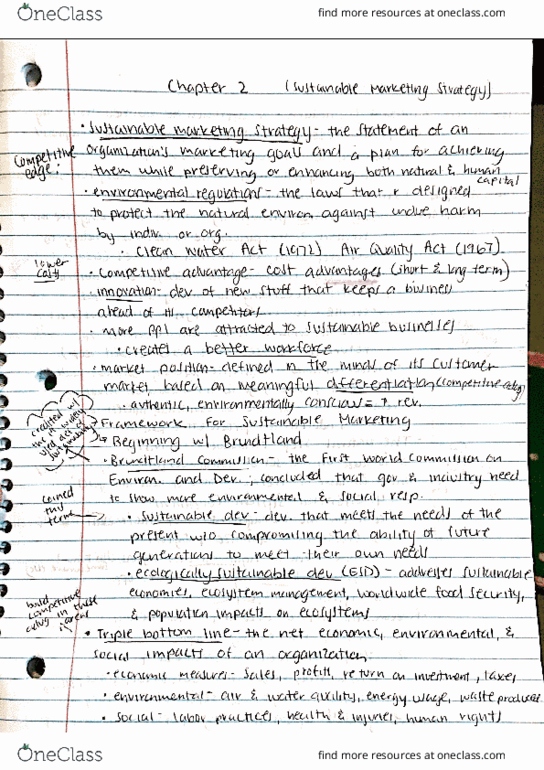 OneClass
find more resources at oneclass.com
Chapter 2 (Sustainable Marketing Strategy)
• Sustainable marketing strategy - the statement of an
Competitive edge:
organization's marketing goals and a plan for achieving
them while preserving or enhancing both natural & human capital
• environmental regulations - the laws that r designed
to protect the natural environ. against undue harm
by indiv. or org.
• Clean Water Act (1972) Air Quality Act (1967)
lower cost
• Competitive advantage - cost advantages (short & long term)
• innovation - dev of new stuff that keeps a business
ahead of its competitors
• more ppl are attracted to sustainable businesses
• creates a better workforce
• market position - defined in the minds of its customer
market, based on meaningful differentiation (competitive edge)
• authentic, environmentally conscious = ↑ rev.
credited w/
Framework for Sustainable Marketing
Beginning w/ Brundtland
• Brundtland Commission - the first world commission on
Environ. and Dev.; concluded that gov & industry need
to show more environmental & social resp.
coined this term
• sustainable dev - dev. that meets the needs of the
present w/o compromising the ability of future
generations to meet their own needs
• ecologically sustainable dev (ESD) - addresses sustainable
economies, ecosystem management, worldwide food security,
& population impacts on ecosystems
build competitive adv in these
• Triple bottom line - the net economic, environmental, &
social impacts of an organization
• economic measures - sales, profits, return on investment, taxes
• environmental - air & water quality, energy usage, waste produced
• social - labor practices, health & injuries, human rights
OneClass
find more resources at oneclass.com